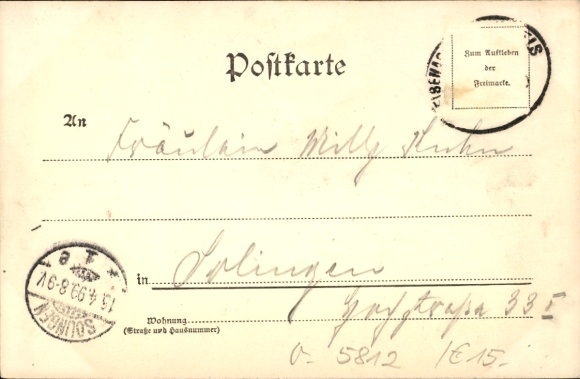 Postkarte
Zum Aufkleben
der
Freimarke.
An Fräulein Willy Kuhn
in Solingen
Wohnung
(Straße und Hausnummer)
33 I
SOLINGEN
13.4.99.8-9V
5812 /€15.-